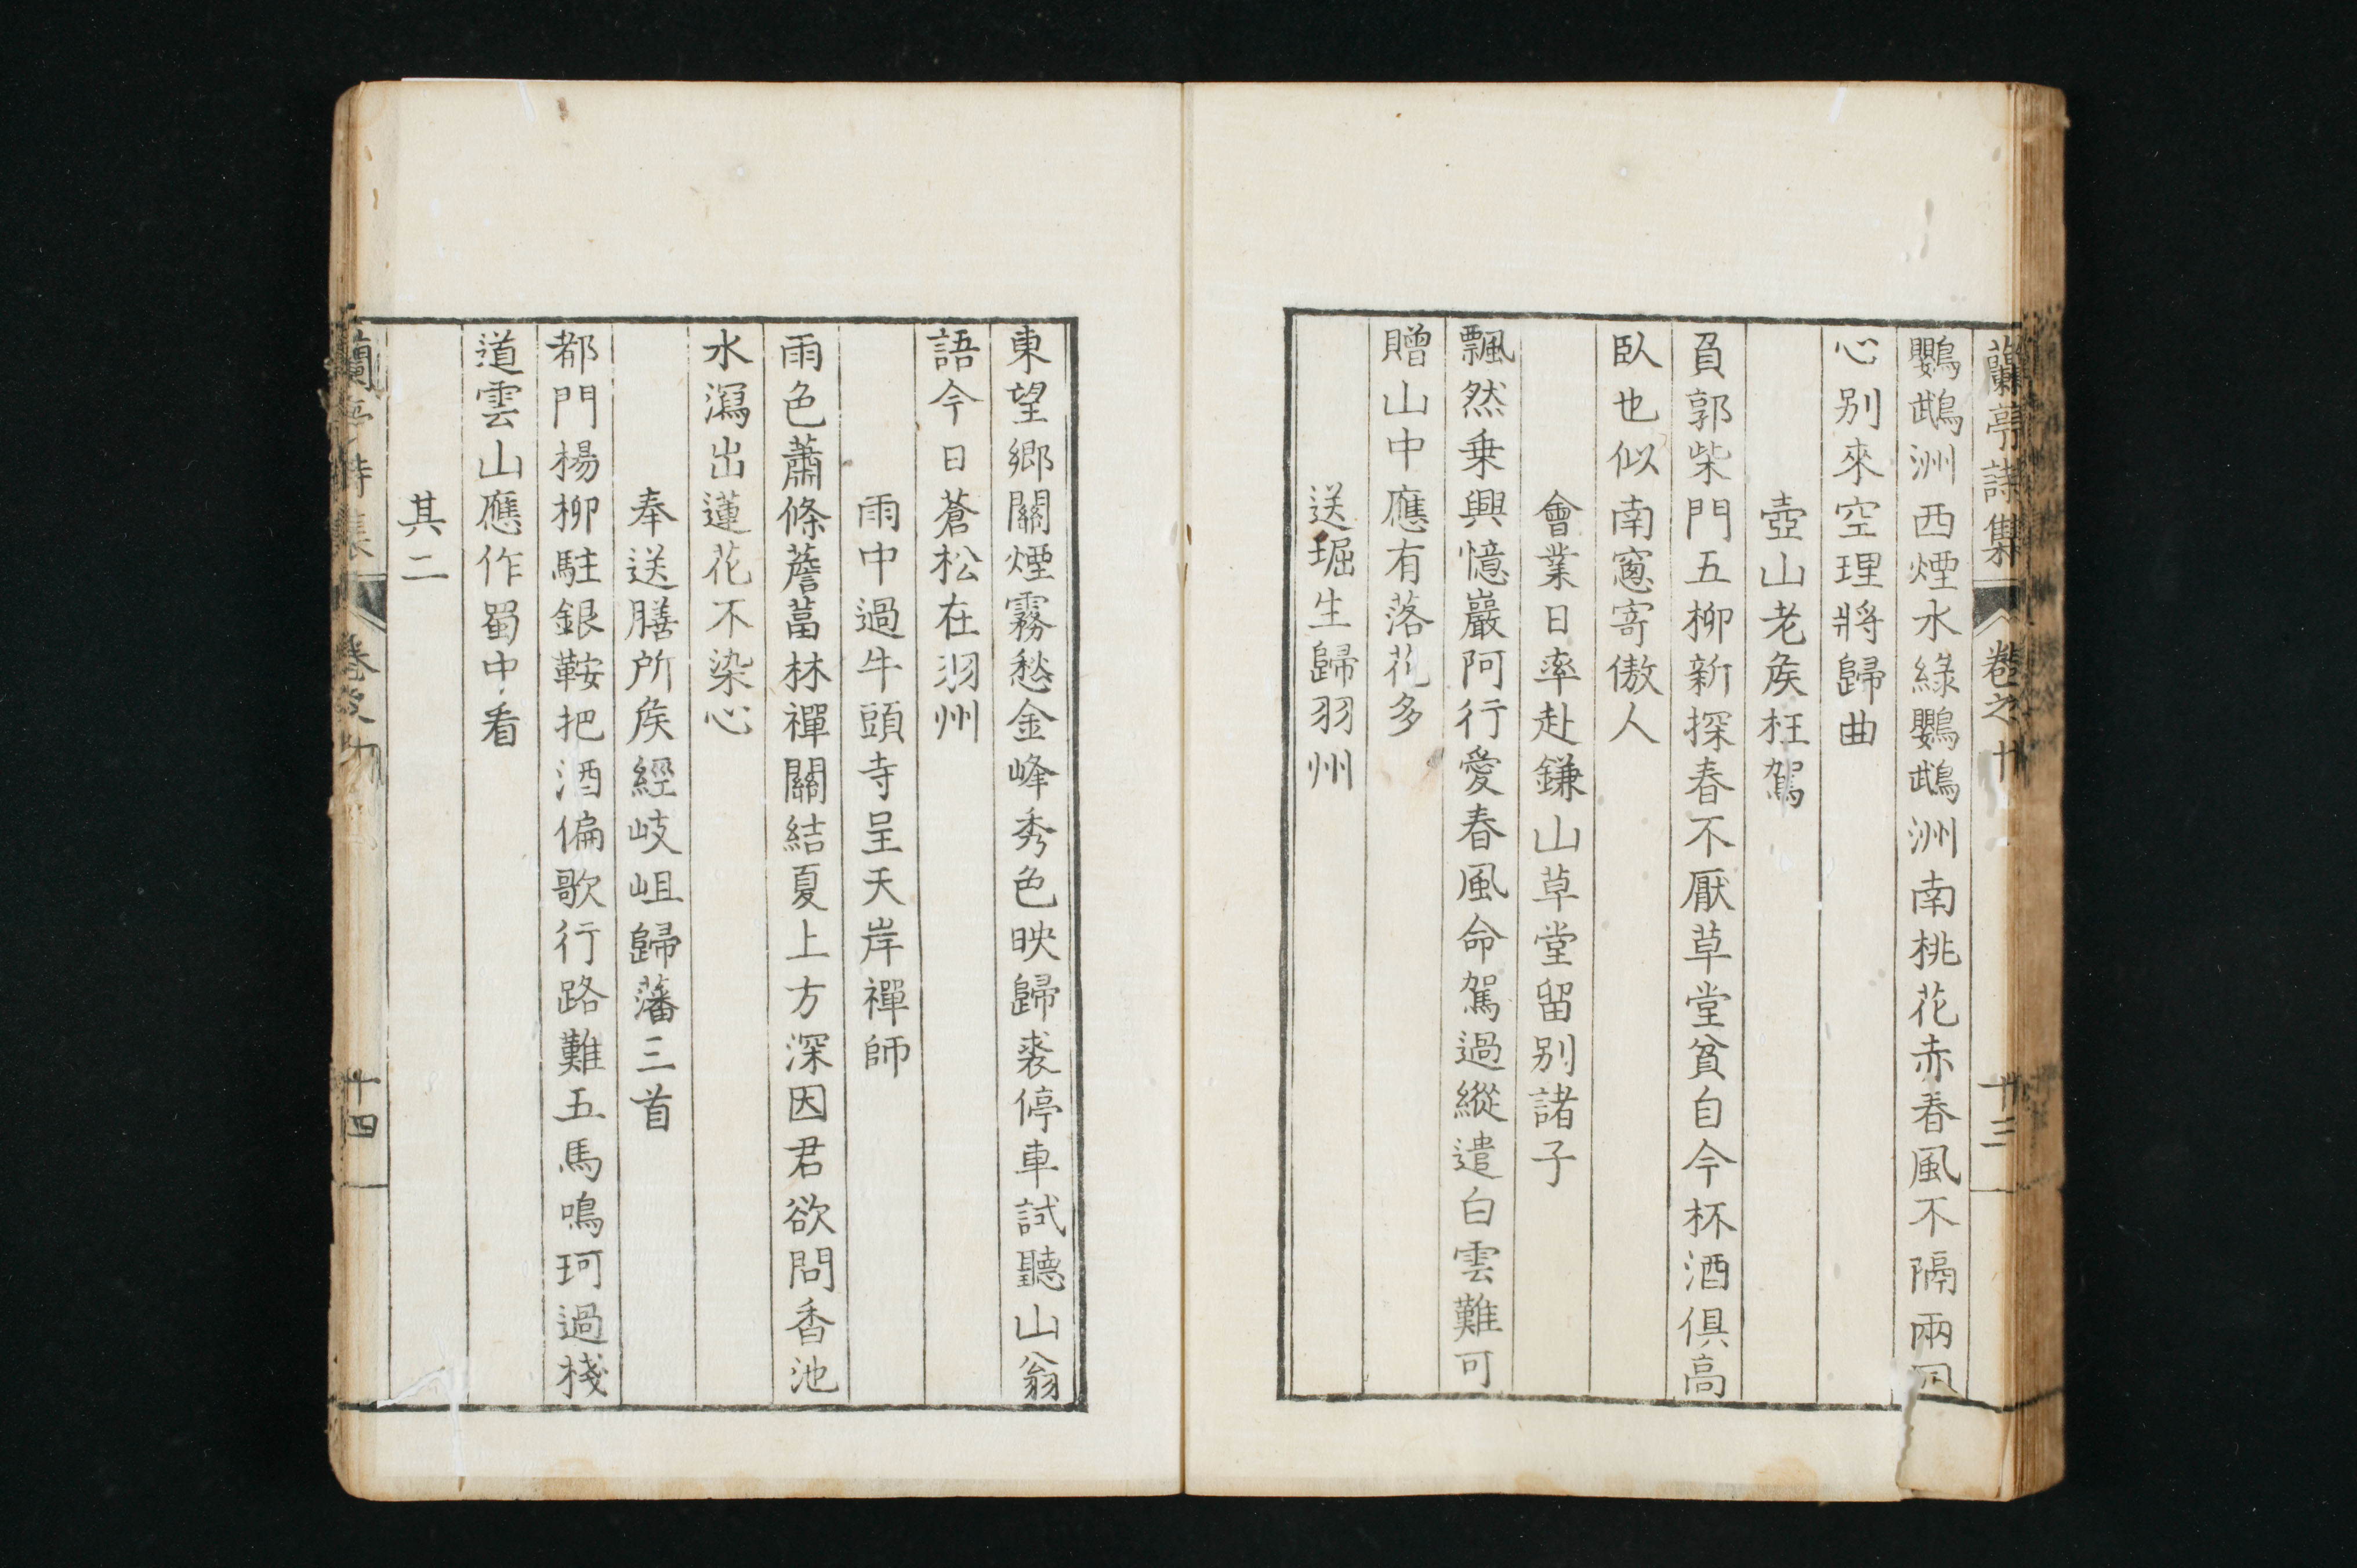 蘭亭詩集 卷之十 十三
鸚鵡洲西煙水綠鸚鵡洲南桃花赤春風不隔兩同
心別來空理將歸曲
壺山老矦枉駕
負郭柴門五柳新探春不厭草堂貧自今杯酒俱高
臥也似南窻寄傲人
會業日率赴鎌山草堂留別諸子
飄然乗興憶巖阿行愛春風命駕過縱遣白雲難可
贈山中應有落花多
送堀生歸羽州
東望鄉關煙霧愁金峰秀色映歸裘停車試聽山翁
語今日蒼松在羽州
雨中過牛頭寺呈天岸禪師
雨色蕭條薝蔔林禪關結夏上方深因君欲問香池
水瀉出蓮花不染心
奉送膳所矦經岐岨歸藩三首
都門楊柳駐銀鞍把酒偏歌行路難五馬鳴珂過棧
道雲山應作蜀中看
其二
蘭亭詩集 卷之 十四